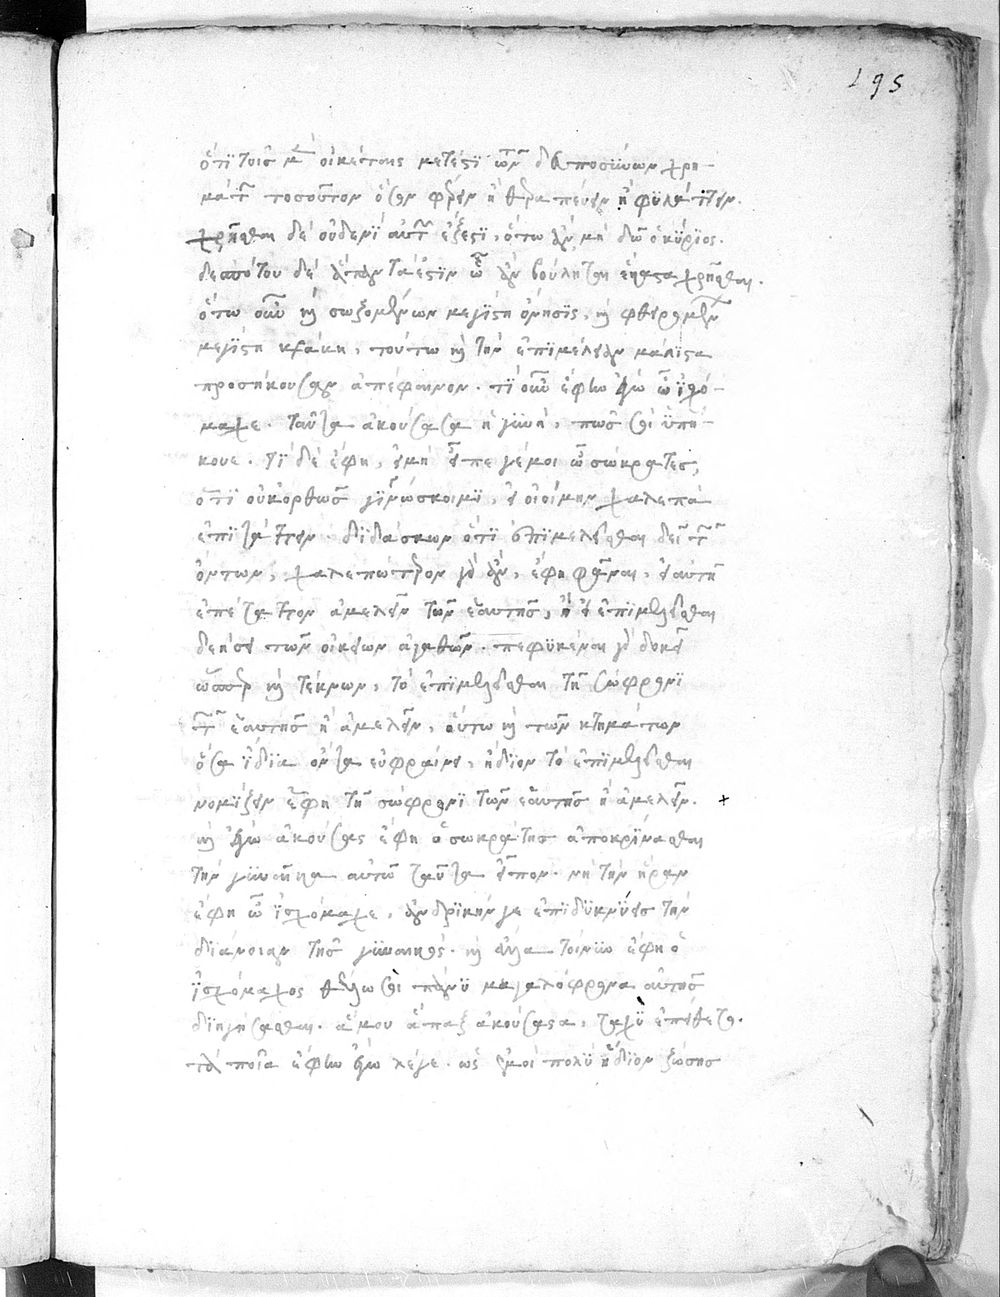 195
ὅτι τοῖς μὲν οἰκέταις μέτεστι τῶν δεσποσύνων χρη-
μάτων τοσοῦτον ὅσον φέρειν ἢ θεραπεύειν ἢ φυλάττειν.
χρῆσθαι δὲ οὐδενὶ αὐτῶν ἔξεστι, ὅτω ἂν μὴ δῶ ὁ κύριος.
δεσπότου δὲ ἅπαντά ἐστιν ὧ ἂν βούληται ἕκαστα χρῆσθαι.
ὅτω οὖν καὶ σωζομένων μεγίστη ὄνησις, καὶ φθειρομένων
μεγίστη βλάβη, τούτω καὶ τὴν ἐπιμέλειαν μάλιστα
προσήκουσαν ἀπέφαινον. τί οὖν ἔφην ἐγὼ ὦ ἰσχό-
μαχε. ταῦτα ἀκούσασα ἡ γυνὴ, πῶς σοι ὑπή-
κουε. τί δὲ ἔφη, εἰ μὴ εἶπέ γέ μοι ὦ σώκρατες,
ὅτι οὐκ ὀρθῶς γινώσκοιμι, εἰ οἰοίμην χαλεπὰ
ἐπιτάττειν διδάσκων ὅτι ἐπιμελεῖσθαι δεῖ τῶν
ὄντων, χαλεπώτερον γὰρ ἂν, ἔφη φάναι, εἰ αὐτῆ
ἐπέταττον ἀμελεῖν τῶν ἑαυτῆς, ἢ εἰ ἐπιμελεῖσθαι
δεήσει τῶν οἰκείων ἀγαθῶν. πεφυκέναι γὰρ δοκεῖ
ὥσπερ καὶ τέκνων, τὸ ἐπιμελεῖσθαι τῆ σώφρονι
τῶν ἑαυτῆς ἢ ἀμελεῖν, οὕτω καὶ τῶν κτημάτων
ὅσα ἴδια ὄντα εὐφραίνει, ἥδιον τὸ ἐπιμελεῖσθαι
νομίζειν ἔφη τῆ σώφρονι τῶν ἑαυτῆς ἢ ἀμελεῖν. +
καὶ ἐγὼ ἀκούσας ἔφη ὁ σωκράτης ἀποκρίνασθαι
τὴν γυναῖκα αὐτῶ ταῦτα εἶπον. νὴ τὴν ἥραν
ἔφη ὦ ἰσχόμαχε, ἀνδρικήν γε ἐπιδεικνύεις τὴν
διάνοιαν τῆς γυναικός. καὶ ἄλλα τοίνυν ἔφη ὁ
ἰσχόμαχος θέλω σοι πάνυ μεγαλόφρονα αὐτῆς
διηγήσασθαι. ἅ μου ἅπαξ ἀκούσασα, ταχὺ ἐπείθετο.
τὰ ποῖα ἔφην ἐγὼ λέγε. ὡς ἐμοὶ πολὺ ἥδιον ζώσης